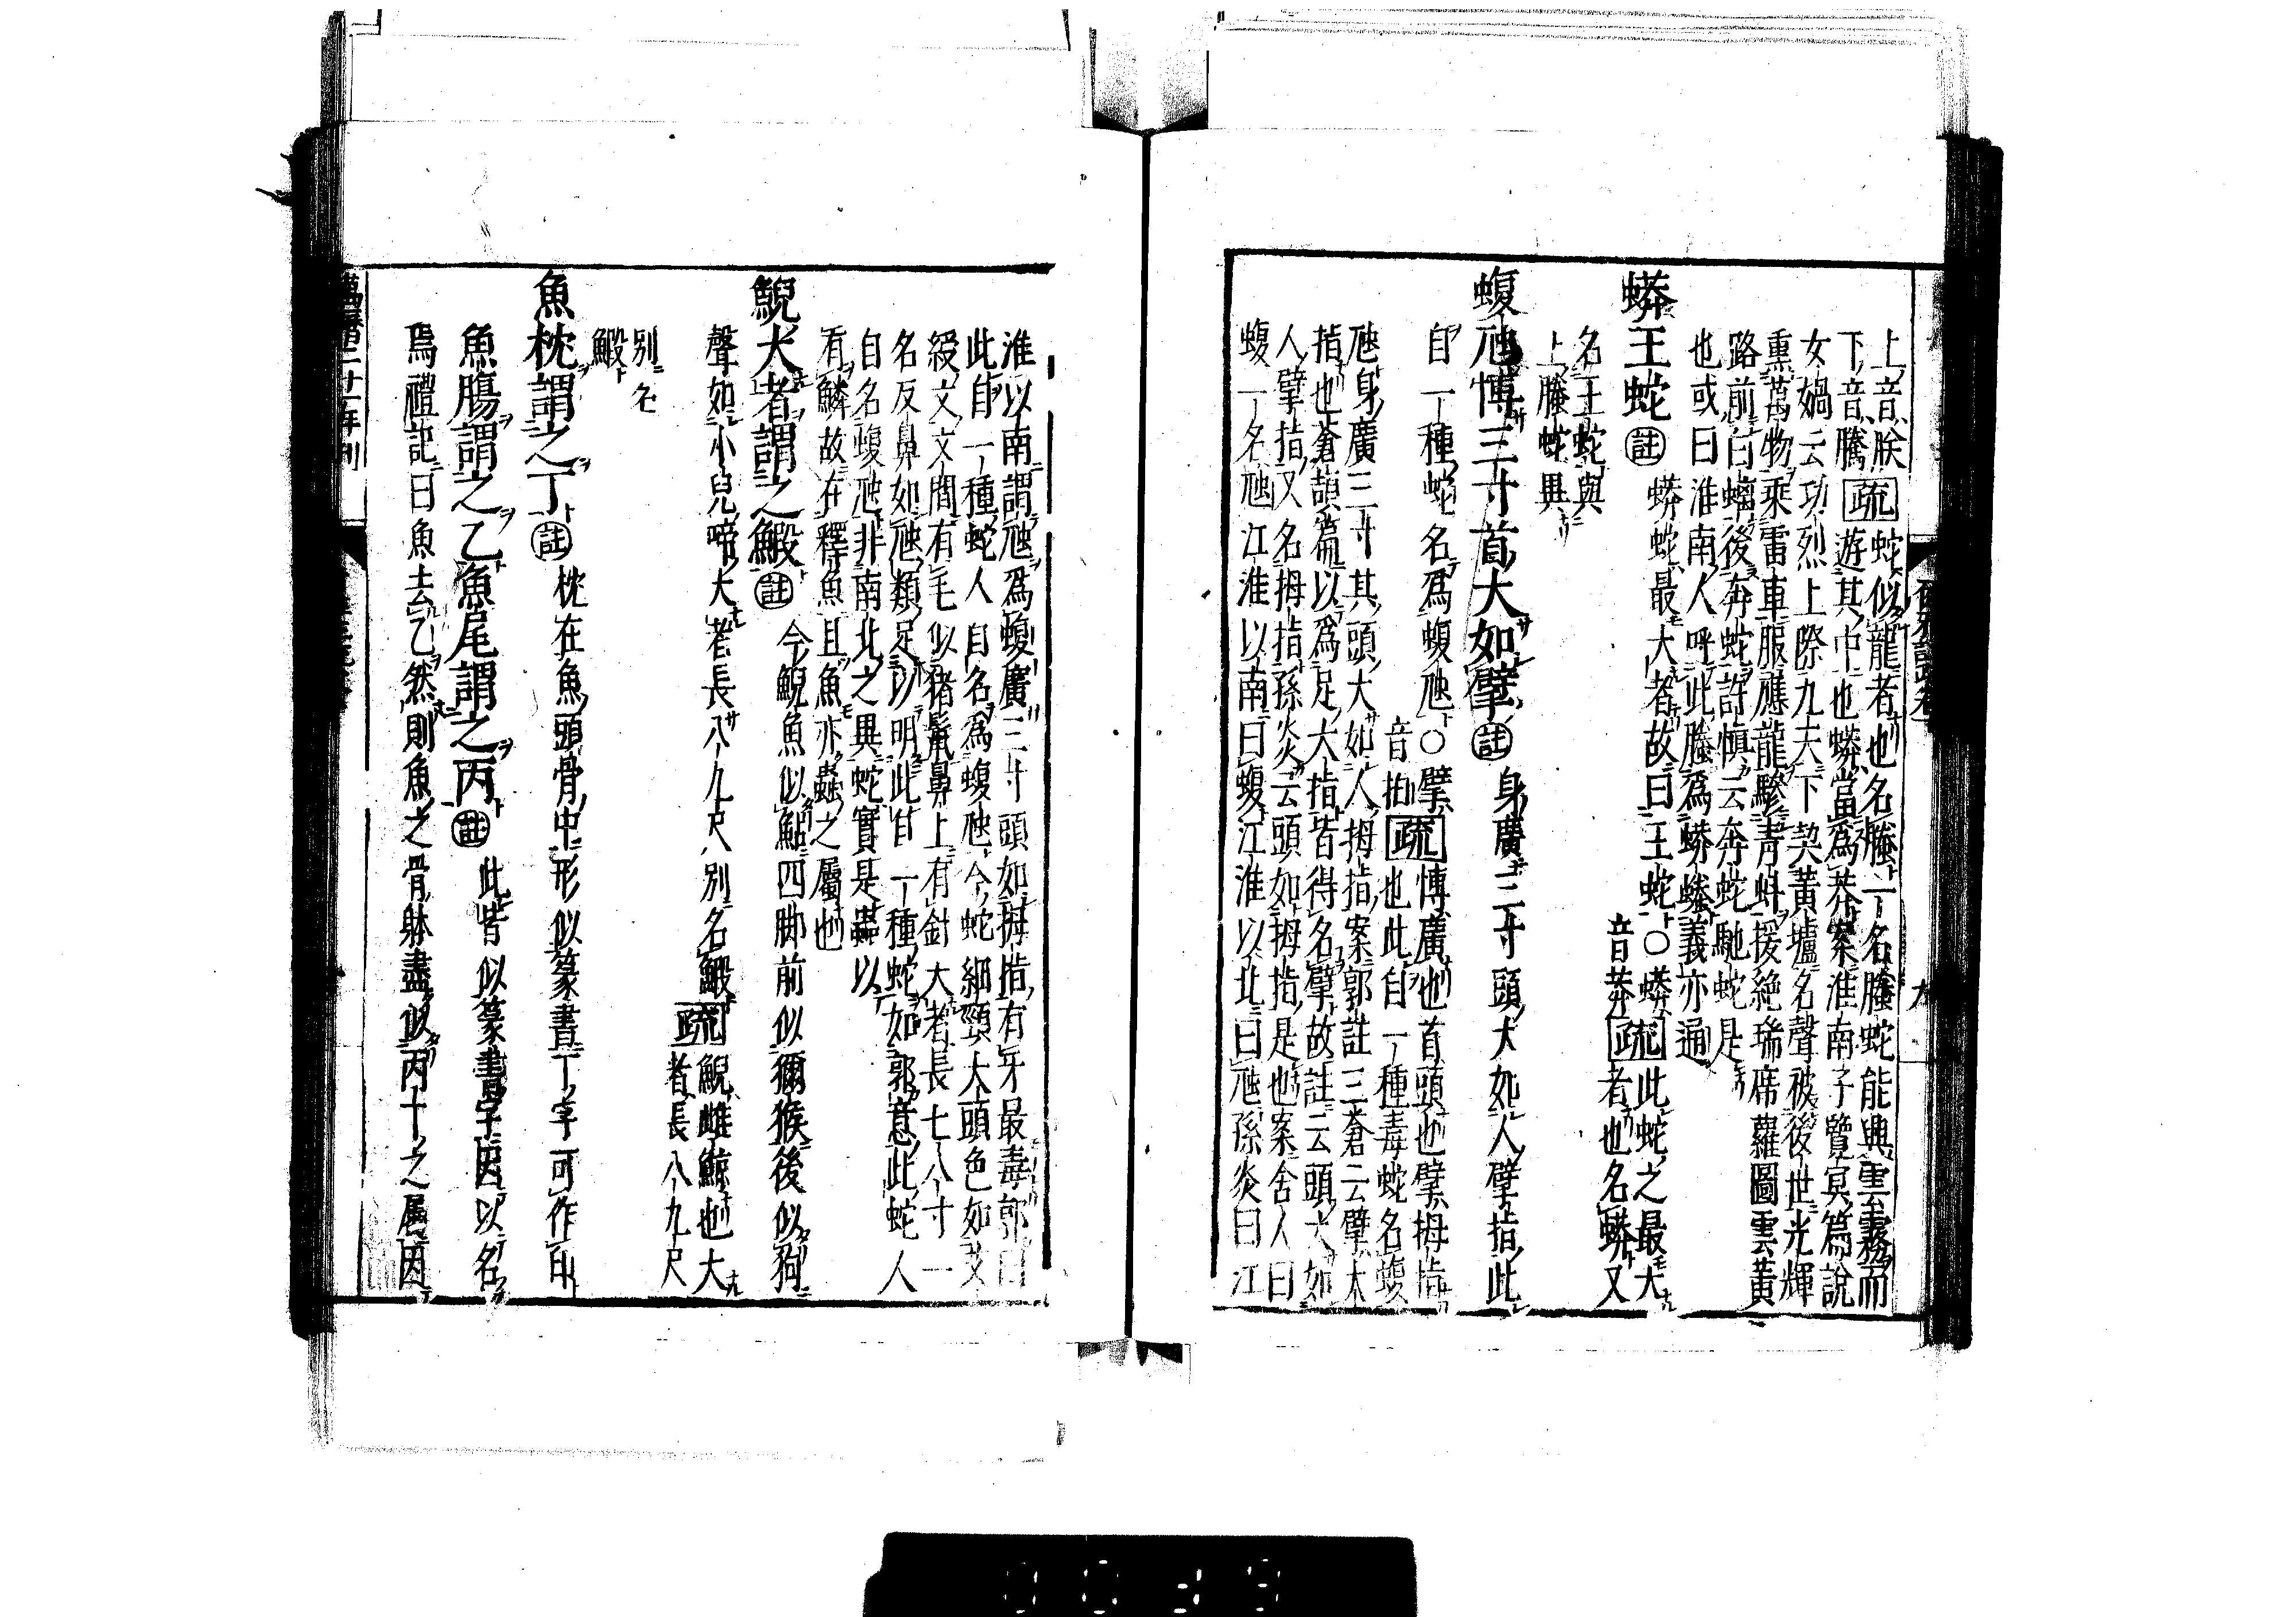 上音朕
疏
蛇似龍者也名螣一名螣蛇能興雲霧而
下音騰
遊其中也蟒當爲莽案淮南子覽冥篇說
女媧云功烈上際九天下契黃壚名聲被後世光輝
熏萬物乘雷車服應龍驂青虯援絕瑞席蘿圖雲黃
路前白螭後奔蛇許慎云奔蛇馳蛇是
也或曰淮南人呼此螣爲蟒螣義亦通
蟒王蛇
註
蟒蛇最大者故曰王蛇○蟒
音莽
疏
此蛇之最大
者也名蟒又
名王蛇與
上螣蛇異
蝮虺博三寸首大如擘
註
身廣三寸頭大如人擘指此
自一種蛇名爲蝮虺○擘
音拍
疏
博廣也首頭也擘拇指
也此自一種毒蛇名蝮
虺身廣三寸其頭大如人拇指案郭註三蒼云擘大
指也蒼頡篇以爲足大指皆得名擘故註云頭大如
人擘指又名拇指孫炎云頭如拇指是也案舍人曰
蝮一名虺江淮以南曰蝮江淮以北曰虺孫炎曰江
淮以南謂虺爲蝮廣三寸頭如拇指有牙最毒郭曰
此自一種蛇人自名爲蝮虺今蛇細頸大頭色如文
綬文文間有毛似猪鬣鼻上有針大者長七八寸一
名反鼻如虺類足以明此自一種蛇如郭意此蛇人
自名蝮虺非南北之異蛇實是蟲以
有鱗故在釋魚且魚亦蟲之屬也
鯢大者謂之鰕
註
今鯢魚似鮎四脚前似獼猴後似狗
聲如小兒啼大者長八九尺別名鰕
疏
鯢雌鯨也大
者長八九尺
別名
鰕
魚枕謂之丁
註
枕在魚頭骨中形似篆書丁字可作印
魚腸謂之乙魚尾謂之丙
註
此皆似篆書字因以名
焉禮記曰魚去乙然則魚之骨躰盡似丙丁之属因
萬曆二十一年刊